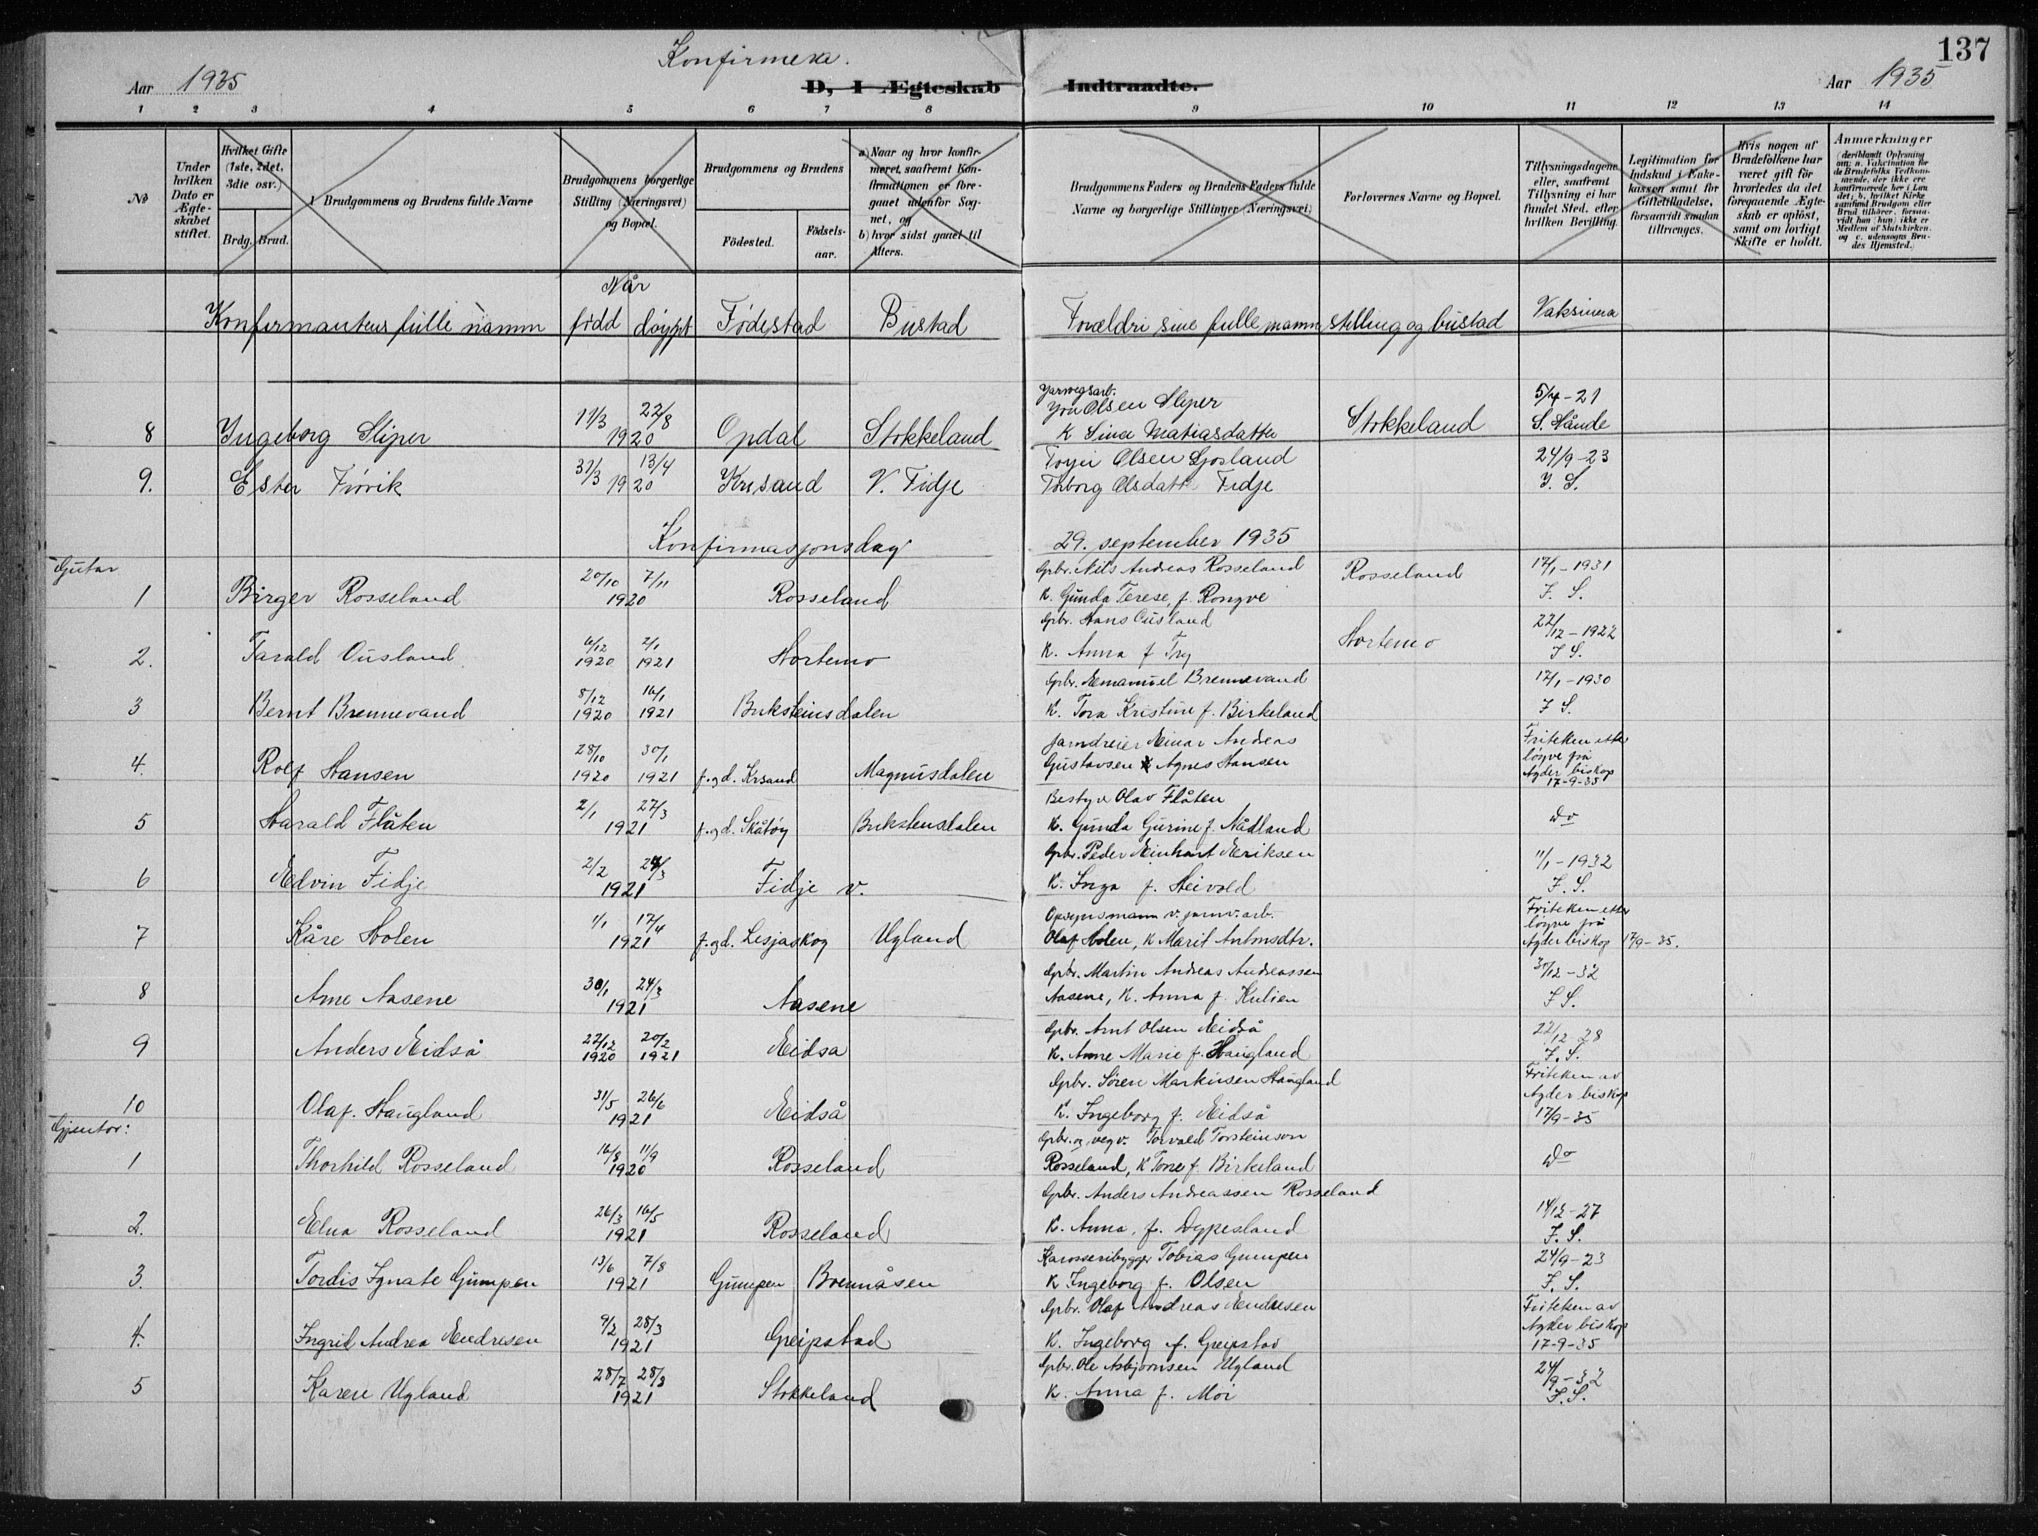 Konfirmera.
137
Aar 1935
D, I Ægteskab Indtraadte.
Aar 1935
1 2 3 4 5 6 7 8 9 10 11 12 13 14
№
Under hvilken Dato er Ægteskabet stiftet.
Hvilket Gifte (1ste, 2det, 3die osv.)
Brdg. Brud.
Brudgommens og Brudens fulde Navne
Brudgommens borgerlige Stilling (Næringsvei) og Bopæl.
Brudgommens og Brudens
Födested.
Födselsaar.
a) Naar og hvor konfirmeret, saafremt Konfirmationen er foregaaet udenfor Sognet, og
b) hvor sidst gaaet til Alters.
Brudgommens Faders og Brudens Faders fulde Navne og borgerlige Stillinger (Næringsvei)
Forlovernes Navne og Bopæl.
Tillysningsdagene eller, saafremt Tillysning ei har fundet Sted, efter hvilken Bevilling.
Legitimation for Indskud i Enkekassen samt for Giftetilladelse, forsaavidt saadan tiltrænges.
Hvis nogen af Brudefolkene har været gift för hvorledes da det foregaaende Ægteskab er oplöst, samt om lovligt Skifte er holdt.
Anmærkninger
(deriblandt Oplysning om: a. Vakcination for de Brudefolks Vedkommende, der ikke ere konfirmerede her i Landet; b. hvilket Kirkesamfund Brudgom eller Brud tilhører, forsaavidt han (hun) ikke er Medlem af Statskirken, og c. udensogns Brudes Hjemsted.)
Når
Konfirmantens fulle namn født døypt Fødestad Bustad Foreldri sine fulle namn stilling og bustad Vaksinera
Jarnvegsarb.
8 Ingeborg Sliper 11/3 22/8 1920 Opdal Stokkeland Jon Olsen Sliper Stokkeland 5/4-21
K Sina Matiasdatter S. Nånde
9. Ester Frøvik 31/3 13/4 1920 Krisand V. Fidje Olsen 24/9-23
Torborg Olsdatt. Fidje J. S.
Konfirmasjonsdag 29. september 1935
Gutar
1 Birger Rosseland 20/10 7/11 1920 Rosseland Gbr. Nils Andreas Rosseland Rosseland 17/1-1931
K. Gunda Terese, f. Rongve J. S.
2. Tarald Ousland 6/12 1920 2/1 1921 Hortemo Gbr. Hans Ousland Hortemo 22/12-1922
K. Anna f Try J S.
3 Bernt Brennevand 8/12 1920 16/1 1921 Buksteinsdalen Gbr. Emanuel Brennevand 17/1-1930
K. Tora Kristine f. Birkeland J S.
4. Rolf Hansen 28/10 1920 30/1 1921 f. og d. Krsand Magnusdalen Jarndreier Einar Andreas Friteken etter
Gustavsen K Agnes Hansen løyve frå
Agder biskop
17-9-35
5 Harald Flåten 2/1 27/3 1921 f. og d. Skåtøy Bukstensdalen Bestyr Olav Flåten do
K. Gunda Gurine f. Nådland
6 Edvin Fidje 2/2 24/3 1921 Fidje v. Gbr. Peder Einhart Eriksen 11/1-1932
K. Inga f. Heivold J. S.
7 Kåre Holen 1/1 17/4 1921 f. og d. Lesjaskog Ugland Opsynsmann v. jarnv. arb. Friteken etter
Olaf Holen, K Marit Antonsdtr. løyve frå
Agder biskop 17/9-35.
8 Arne Aasene 30/1 24/3 1921 Aasene Gbr. Martin Andreas Andreassen 30/12-32
Aasene, K. Anna f. Kulien J S.
9 Anders Eidså 22/12 1920 20/2 1921 Eidsa Gbr. Arnt Olsen Eidså 22/12-28
K. Anne Marie f. Haugland J. S.
10 Olaf Haugland 31/5 26/6 1921 Eidså Gbr. Søren Markusen Haugland Friteken av
K. Ingeborg f. Eidså Agder biskop
17/9-35
Gjentor:
1 Thorhild Rosseland 16/8 11/9 1920 Rosseland Gbr. og vegv. Torvald Torsteinson do
Rosseland, K Tone f. Birkeland
2. Elna Rosseland 26/3 16/5 1921 Rosseland Gbr. Anders Andreassen Rosseland 14/12-27
K. Anna, f. Dypesland J. S.
3. Tordis Ignate Gumpen 13/6 7/8 1921 Gumpen Brennåsen Karosseribygger Tobias Gumpen 24/9-23
K Ingeborg f. Olsen J. S.
4. Ingrid Andrea Endresen 9/2 28/3 1921 Greipstad Gbr. Olaf Andreas Endresen Friteken av
K. Ingeborg f. Greipstad Agder biskop
17-9-35
5 Karen Ugland 28/7 28/8 1921 Stokkeland Gbr. Ole Asbjørnsen Ugland 24/9-32
K. Anna f. Moi J. S.